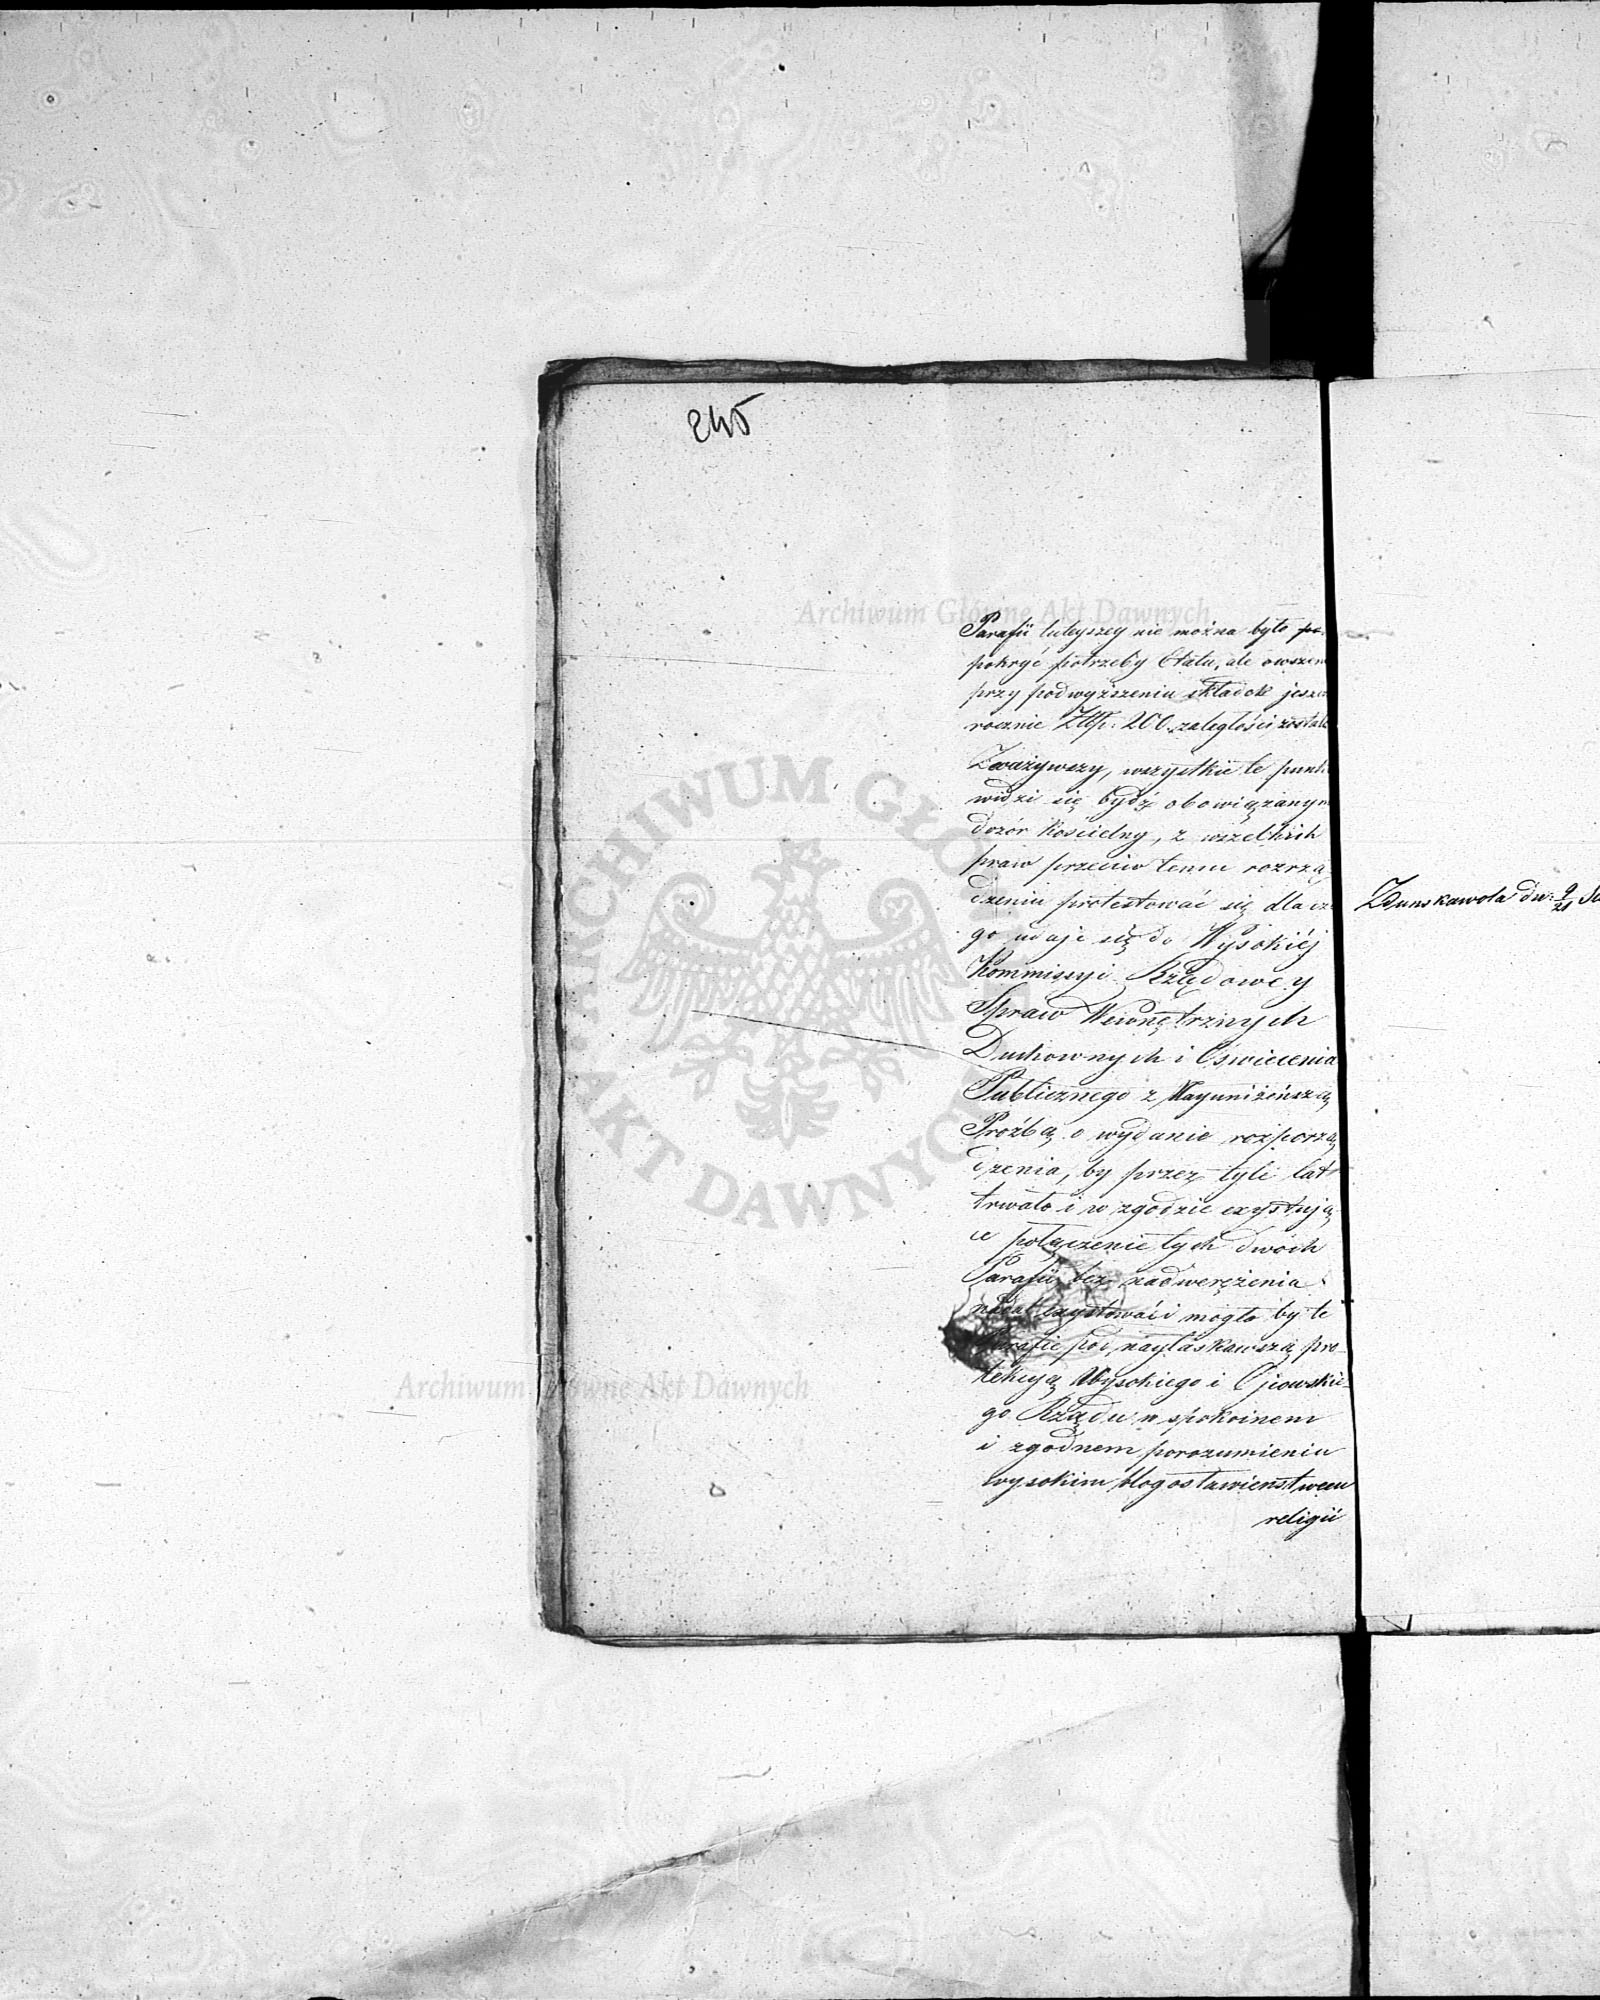 245
Parafii tuteyszey nie można było po
pokryć potrzeby Etatu, ale owszem
przy podwyższeniu składek jeszcz
rocznie Złłp: 200 zaległości został
Zważywszy, wszystkie te punk
widzi się bydź obowiązanym
dozór Kościelny, z wszelkich
praw przeciw temu rozrzą
dzeniu protestować się dla cze
go udaje się do Wysokiéj
Kommissyi Rzędowey
Spraw Wewnętrznych
Duchownych i Oswiecenia
Publicznego z Nayuniżeńszą
Proźbą o wydanie rozporzą
dzenia, by przez tyle lat
trwało i w zgodzie exystują
ce połączenie tych dwóch
Parafii bez nadwerężenia
nadal exystować i mogło by te
Parafie pod nayłaskawszą pro
tekcyą Wysokiego i Ojcowskie
go Rządu w spokoinem
i zgodnem porozumieniu
wysokim błogosławieństwem
religii
Zdunskawola dn: 9/21
Archiwum Główne Akt Dawnych
ARCHIWUM GŁÓWNE AKT DAWNYCH
Archiwum Główne Akt Dawnych